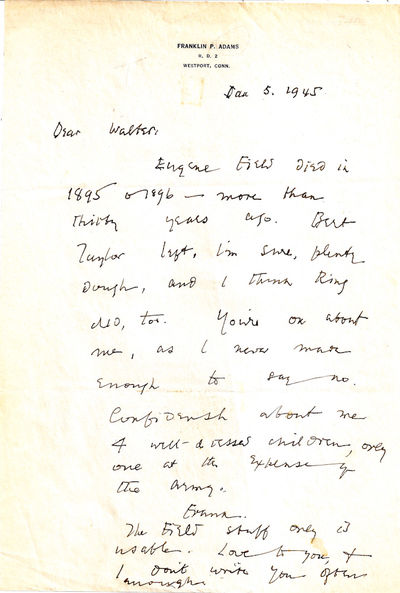 FRANKLIN P. ADAMS
R. D. 2
WESTPORT, CONN.
5. 1945
Dear Walter:
Eugene Field died in
1895 or 1896 — more than
thirty years ago. Bert
Taylor left, I'm sure, plenty
dough, and I think Ring
did, too. You're on about
me, as I never made
enough to say no.
about me
4 well-dressed children, only
one at the expense of
the army.
Frank.
The Field stuff only is
usable. Love to you, +
I don't write you often
enough.